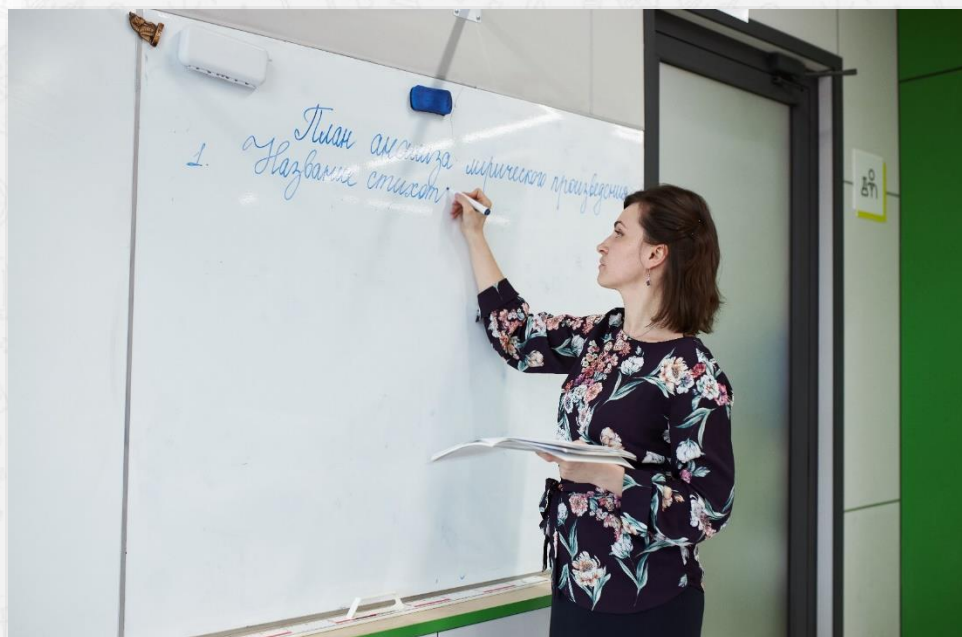 План анализа лирического произведения
1. Название стихот